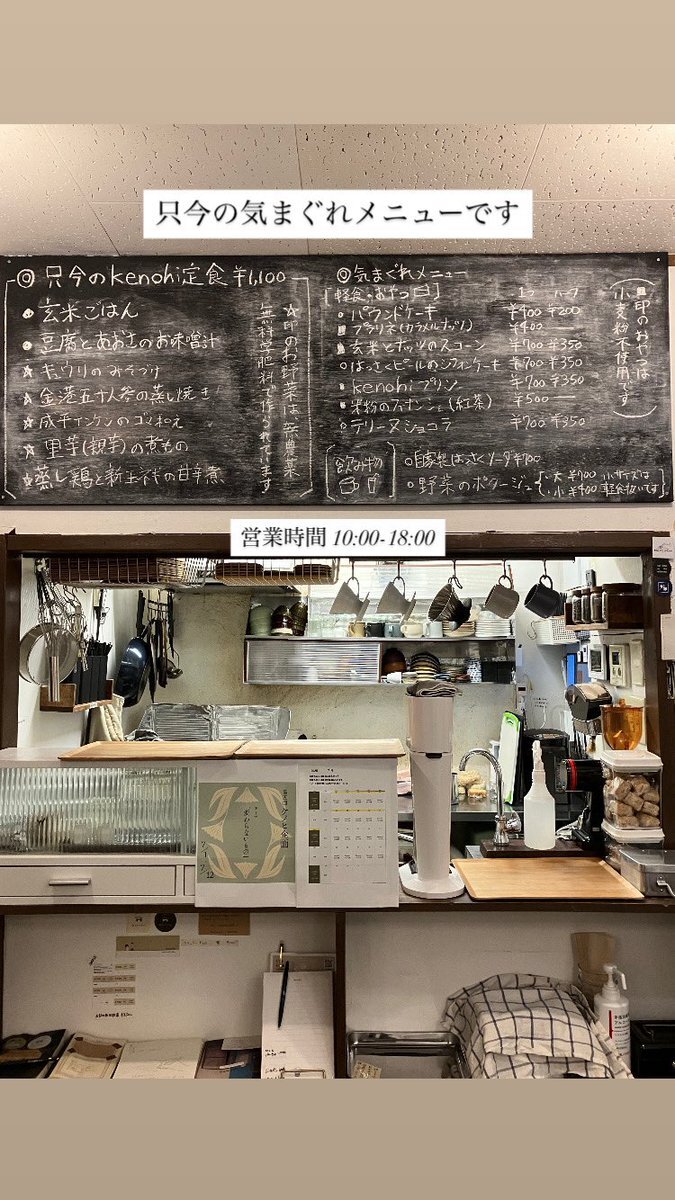 只今の気まぐれメニューです
◎只今のkenohi定食 ¥1,100
玄米ごはん
豆腐とあおさのお味噌汁
☆キュウリのみそづけ
☆金港五寸人参の蒸し焼き
☆成平インゲンのゴマ和え
☆里芋(親芋)の煮もの
☆蒸し鶏と新玉ねぎの甘辛煮、
☆印のお野菜は無農薬
無科学肥料で作られてます
◎気まぐれメニュー
軽食・おやつ
パウンドケーキ ¥400 ¥200
プラリネ(カラメルナッツ) ¥400 ー
玄米とナッツのスコーン ¥700 ¥350
はっさくピールのシフォンケーキ ¥700 ¥350
kenohiプリン ¥700 ¥350
米粉のフィナンシェ(紅茶) ¥500 ー
テリーヌショコラ ¥700 ¥350
■印のおやつは
小麦粉不使用です
飲み物
○自家製はっさくソーダ ¥700
○野菜のポタージュ
・大 ¥700 小サイズは
・小 ¥400 軽食扱いです
営業時間 10:00-18:00
変わらないもの